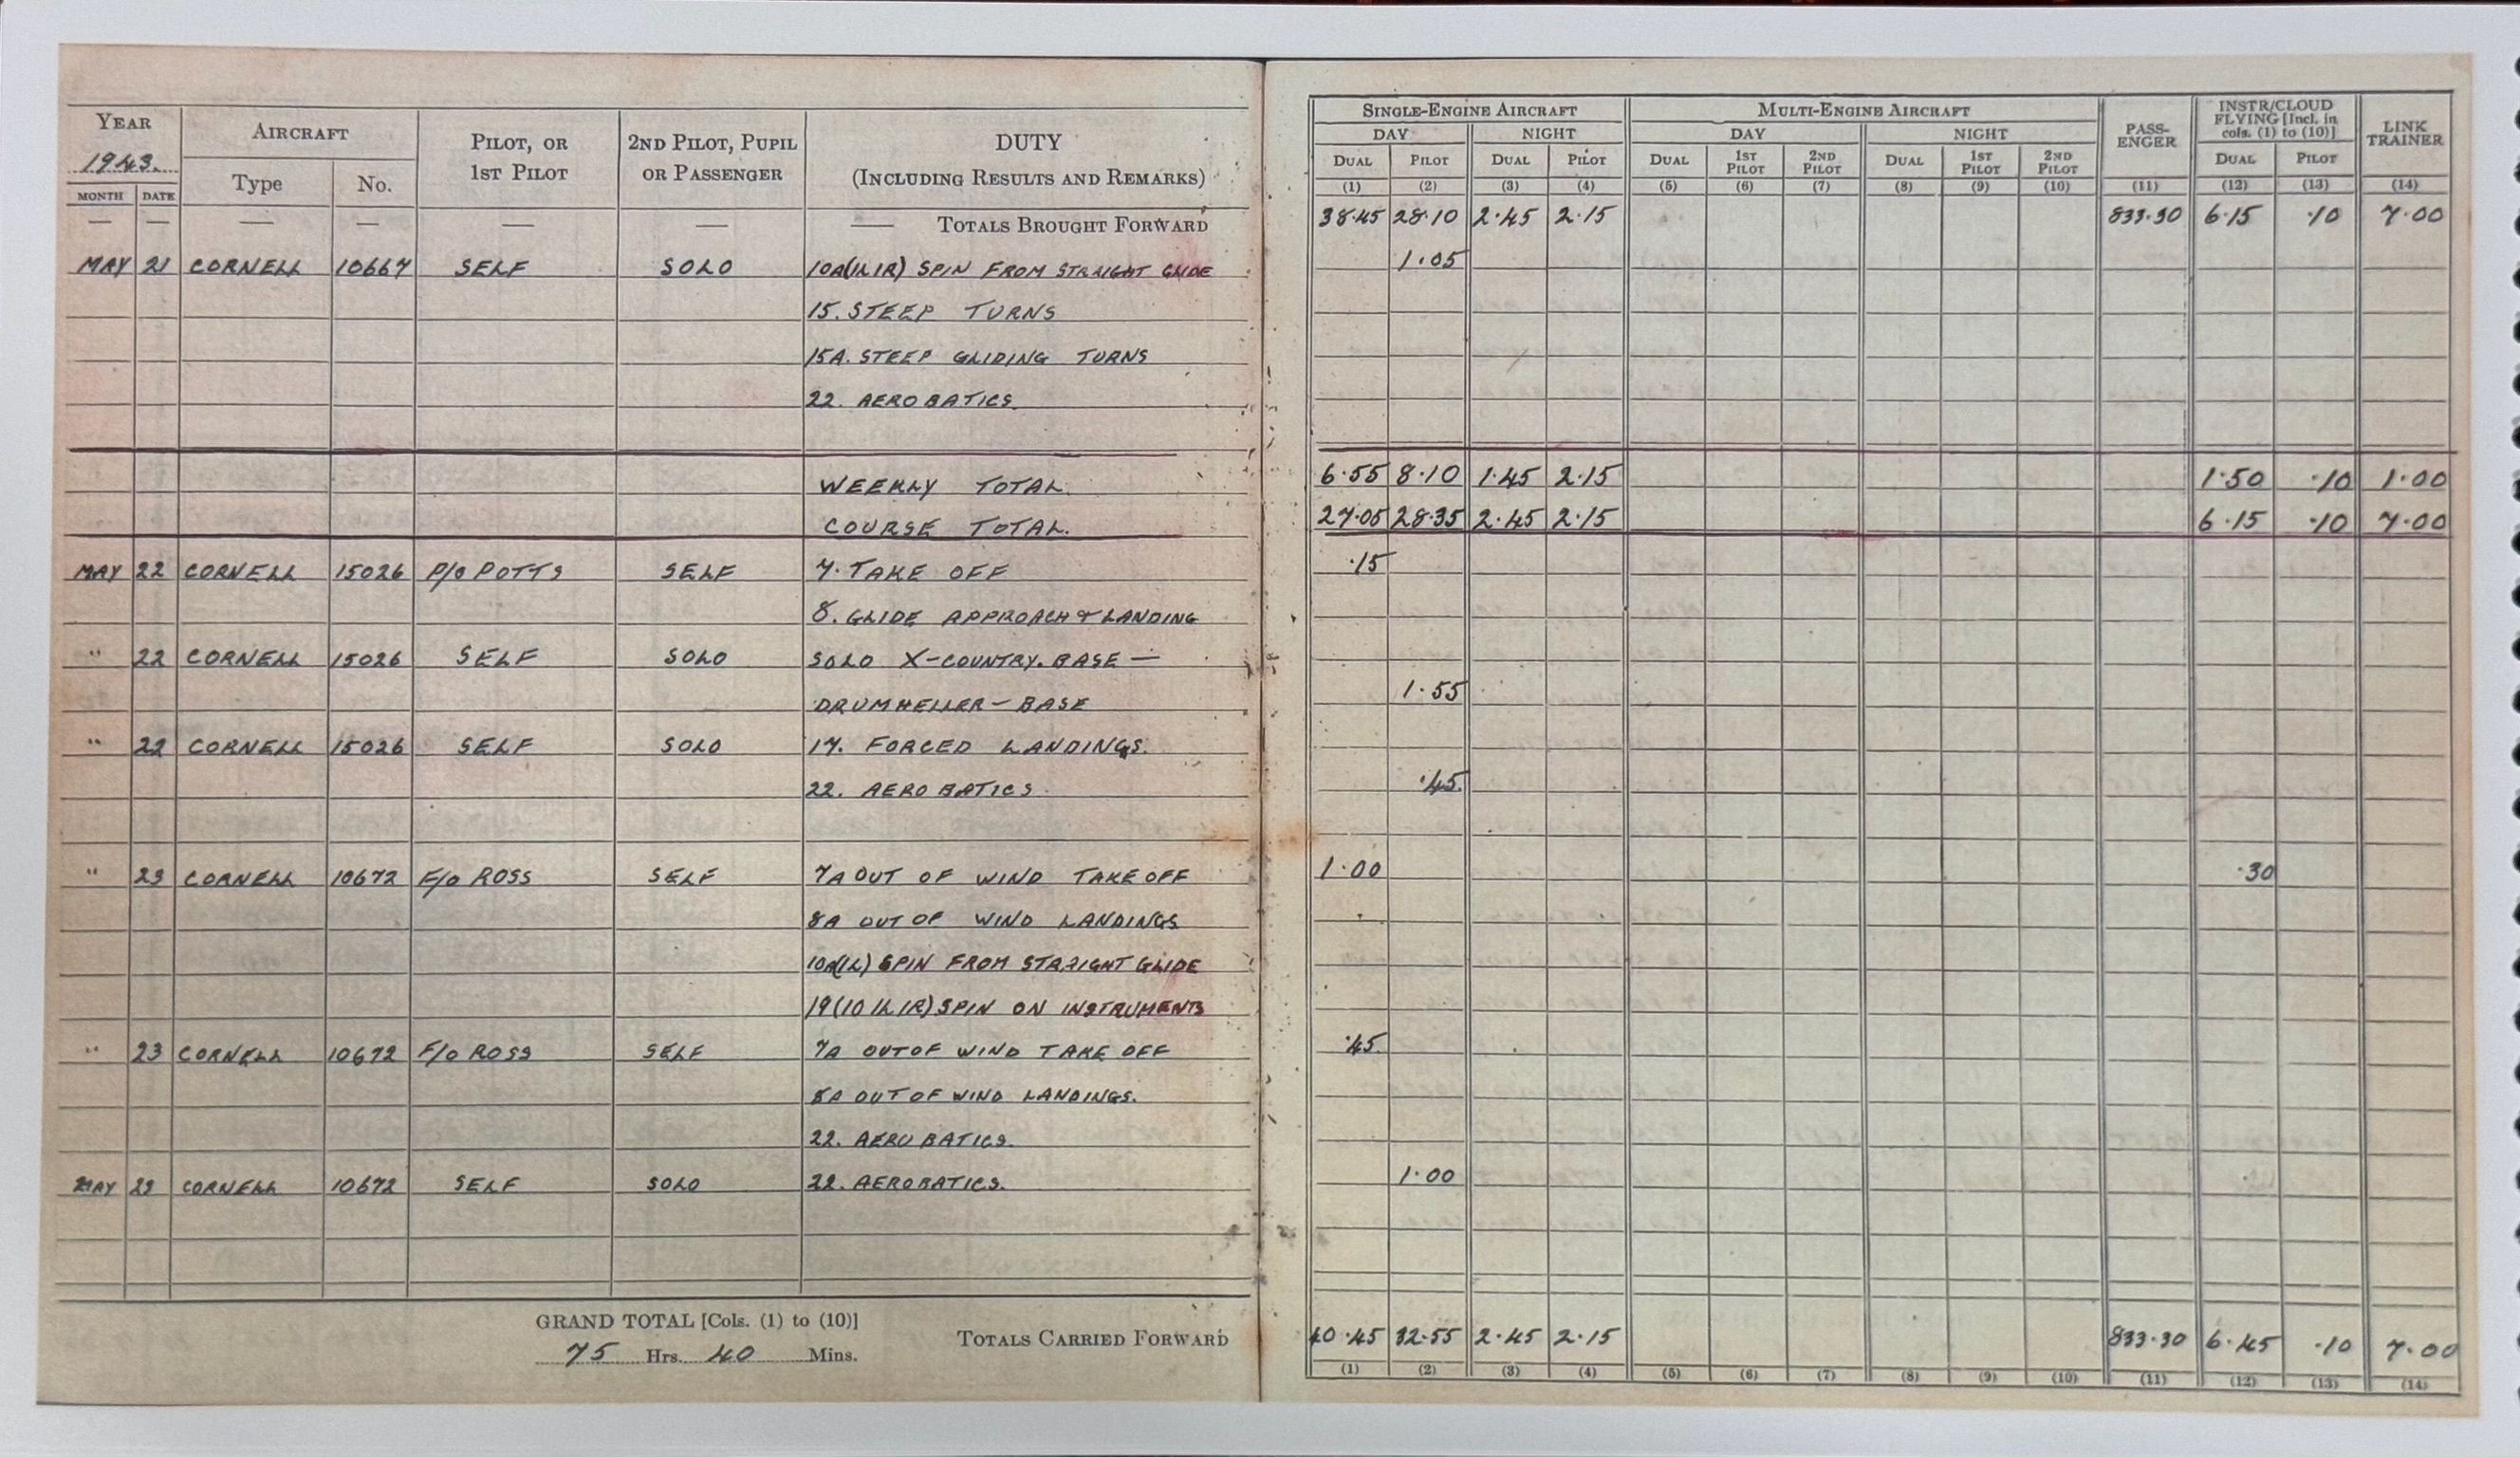 YEAR 1943. AIRCRAFT PILOT, OR 1ST PILOT 2ND PILOT, PUPIL OR PASSENGER DUTY (INCLUDING RESULTS AND REMARKS)
MONTH DATE Type No.
SINGLE-ENGINE AIRCRAFT MULTI-ENGINE AIRCRAFT PASS-ENGER INSTR/CLOUD FLYING [Incl. in cols. (1) to (10)] LINK TRAINER
DAY NIGHT DAY NIGHT
DUAL PILOT DUAL PILOT DUAL 1ST PILOT 2ND PILOT DUAL 1ST PILOT 2ND PILOT DUAL PILOT
(1) (2) (3) (4) (5) (6) (7) (8) (9) (10) (11) (12) (13) (14)
— — — — — — — TOTALS BROUGHT FORWARD 38.45 28.10 2.45 2.15 833.30 6.15 .10 7.00
MAY 21 CORNELL 10667 SELF SOLO 10A(1L1R) SPIN FROM STRAIGHT GLIDE 1.05
15. STEEP TURNS
15A. STEEP GLIDING TURNS
22. AEROBATICS.
WEEKLY TOTAL. 6.55 8.10 1.45 2.15 1.50 .10 1.00
COURSE TOTAL. 27.05 28.35 2.45 2.15 6.15 .10 7.00
MAY 22 CORNELL 15026 P/O POTTS SELF 7. TAKE OFF .15
8. GLIDE APPROACH & LANDING
" 22 CORNELL 15026 SELF SOLO SOLO X-COUNTRY. BASE —
DRUMHELLER — BASE 1.55
" 22 CORNELL 15026 SELF SOLO 17. FORCED LANDINGS.
22. AEROBATICS. .45.
" 23 CORNELL 10672 F/O ROSS SELF 7A OUT OF WIND TAKE OFF 1.00 .30
8A OUT OF WIND LANDINGS
10A(1L) SPIN FROM STRAIGHT GLIDE
19(10 1L 1R) SPIN ON INSTRUMENTS
" 23 CORNELL 10672 F/O ROSS SELF 7A OUT OF WIND TAKE OFF .45.
8A OUT OF WIND LANDINGS.
22. AEROBATICS.
MAY 23 CORNELL 10672 SELF SOLO 22. AEROBATICS. 1.00
GRAND TOTAL [Cols. (1) to (10)]
75 Hrs. 40 Mins.
TOTALS CARRIED FORWARD 40.45 32.55 2.45 2.15 833.30 6.45 .10 7.00
(1) (2) (3) (4) (5) (6) (7) (8) (9) (10) (11) (12) (13) (14)